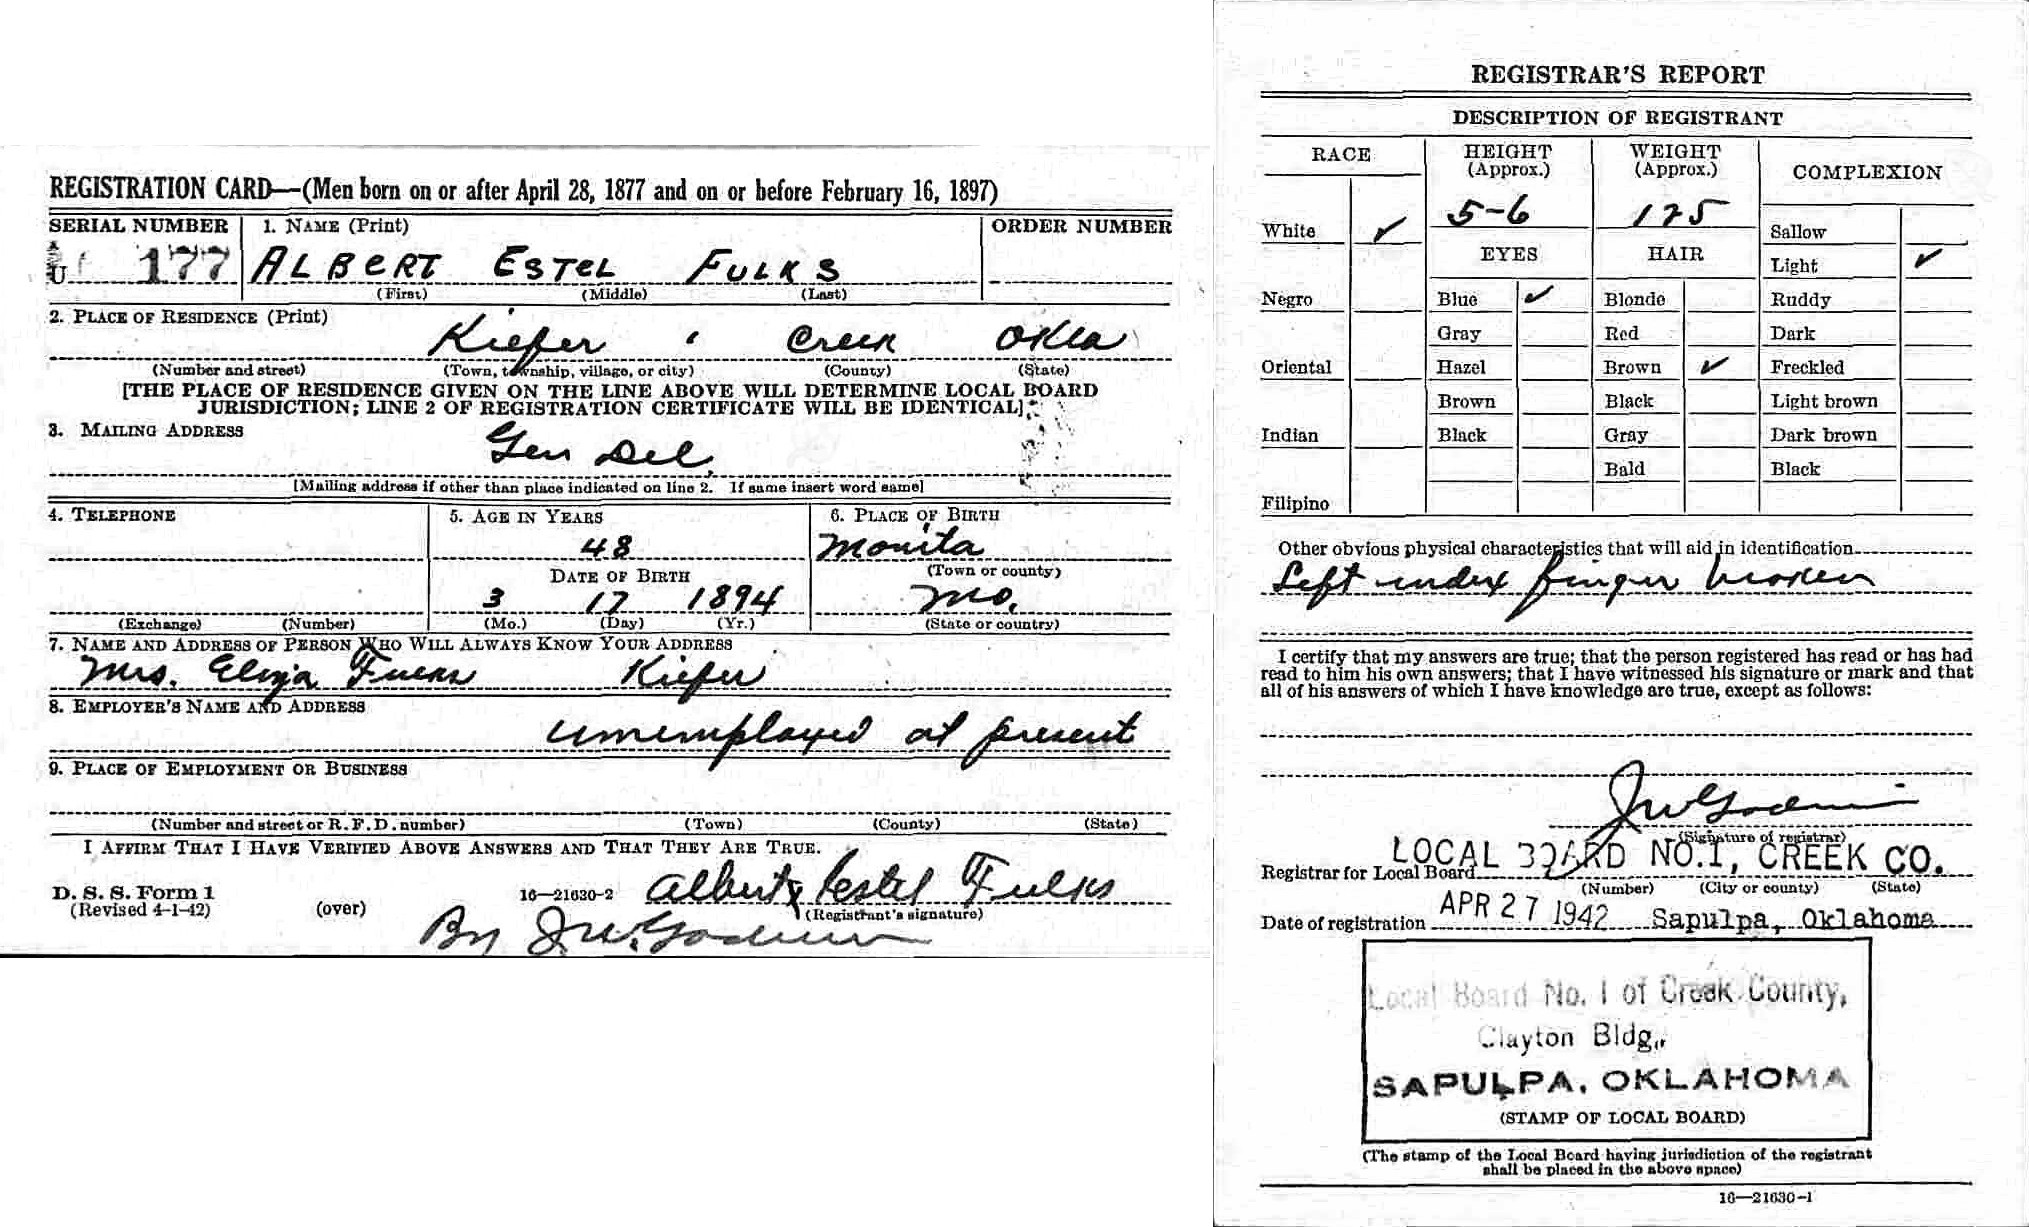 REGISTRATION CARD—(Men born on or after April 28, 1877 and on or before February 16, 1897)
SERIAL NUMBER 1. NAME (Print) ORDER NUMBER
U 177 ALBERT ESTEL FULKS
(First) (Middle) (Last)
2. PLACE OF RESIDENCE (Print)
Kiefer Creek Okla
(Number and street) (Town, township, village, or city) (County) (State)
[THE PLACE OF RESIDENCE GIVEN ON THE LINE ABOVE WILL DETERMINE LOCAL BOARD
JURISDICTION; LINE 2 OF REGISTRATION CERTIFICATE WILL BE IDENTICAL]
3. MAILING ADDRESS
Gen Del.
[Mailing address if other than place indicated on line 2. If same insert word same]
4. TELEPHONE 5. AGE IN YEARS 6. PLACE OF BIRTH
48 Monita
DATE OF BIRTH (Town or county)
3 17 1894 Mo.
(Exchange) (Number) (Mo.) (Day) (Yr.) (State or country)
7. NAME AND ADDRESS OF PERSON WHO WILL ALWAYS KNOW YOUR ADDRESS
Mrs. Eliza Fulks Kiefer
8. EMPLOYER'S NAME AND ADDRESS
unemployed at present
9. PLACE OF EMPLOYMENT OR BUSINESS
(Number and street or R. F. D. number) (Town) (County) (State)
I AFFIRM THAT I HAVE VERIFIED ABOVE ANSWERS AND THAT THEY ARE TRUE.
D. S. S. Form 1 16—21630-2 Albert Estel Fulks
(Revised 4-1-42) (over) (Registrant's signature)
By J.W. Godwin
REGISTRAR'S REPORT
DESCRIPTION OF REGISTRANT
RACE HEIGHT (Approx.) WEIGHT (Approx.) COMPLEXION
White ✓ 5-6 175 Sallow
EYES HAIR Light ✓
Negro Blue ✓ Blonde Ruddy
Gray Red Dark
Oriental Hazel Brown ✓ Freckled
Brown Black Light brown
Indian Black Gray Dark brown
Bald Black
Filipino
Other obvious physical characteristics that will aid in identification
Left index finger broken
I certify that my answers are true; that the person registered has read or has had
read to him his own answers; that I have witnessed his signature or mark and that
all of his answers of which I have knowledge are true, except as follows:
J W Godwin
(Signature of registrar)
Registrar for Local Board LOCAL BOARD NO. 1, CREEK CO.
(Number) (City or county) (State)
Date of registration APR 27 1942 Sapulpa, Oklahoma
Local Board No. 1 of Creek County,
Clayton Bldg.,
SAPULPA, OKLAHOMA
(STAMP OF LOCAL BOARD)
(The stamp of the Local Board having jurisdiction of the registrant
shall be placed in the above space)
16—21630-1